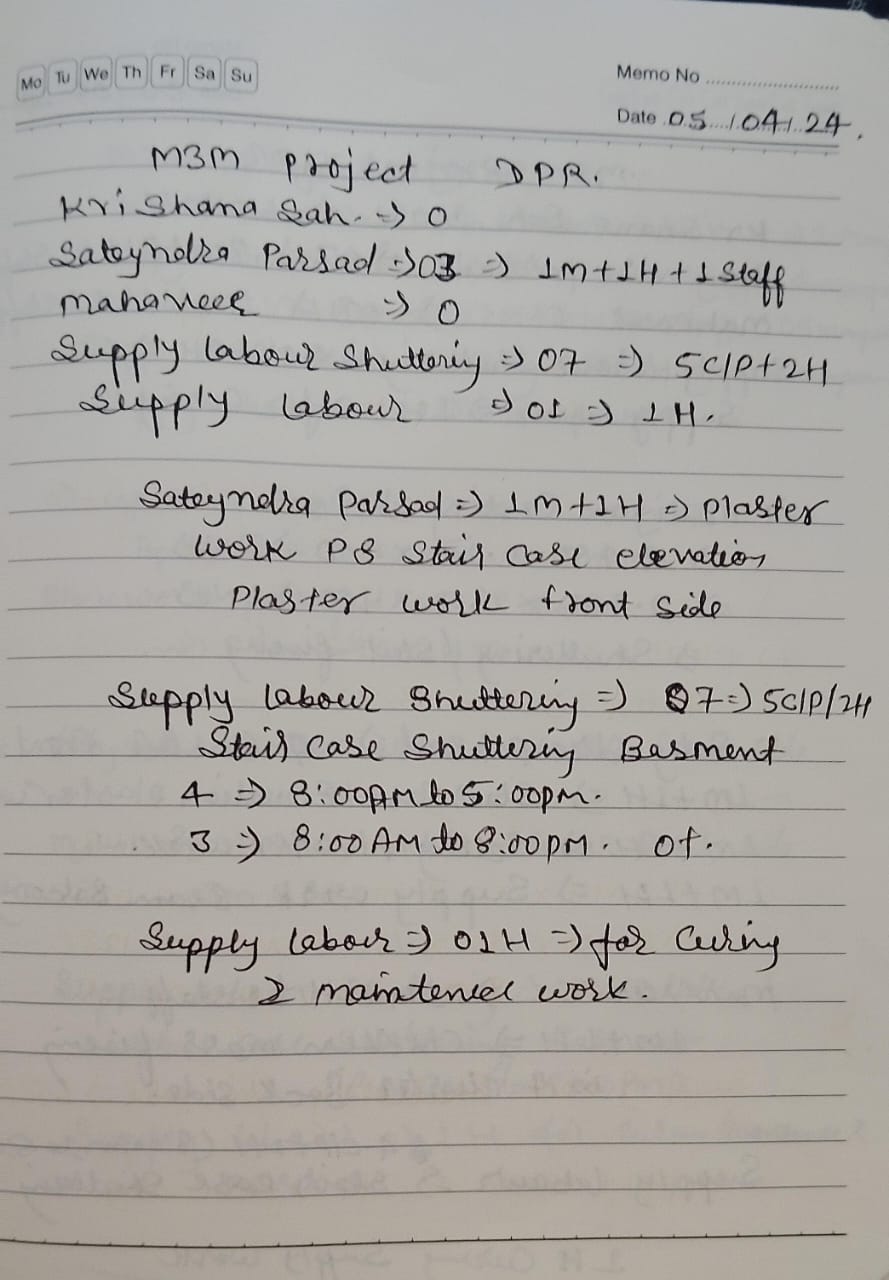 Mo Tu We Th Fr Sa Su
Memo No
Date 05/04/24.
M3M project DPR.
Krishana Sah. => 0
Sateyndra Parsad => 03 => 1M+1H+1 Staff
mahaveer => 0
Supply labour Shuttering => 07 => 5C/P+2H
Supply labour => 01 => 1H.
Sateyndra Parsad => 1M+1H => plaster
work P8 Stair case elevation
Plaster work front side
Supply labour Shuttering => 07 => 5C/P/2H
Stair case Shuttering Basment
4 => 8:00AM to 5:00pm.
3 => 8:00 AM to 8:00pm. ot.
Supply labour => 01H => for Curing
2 maintencel work.